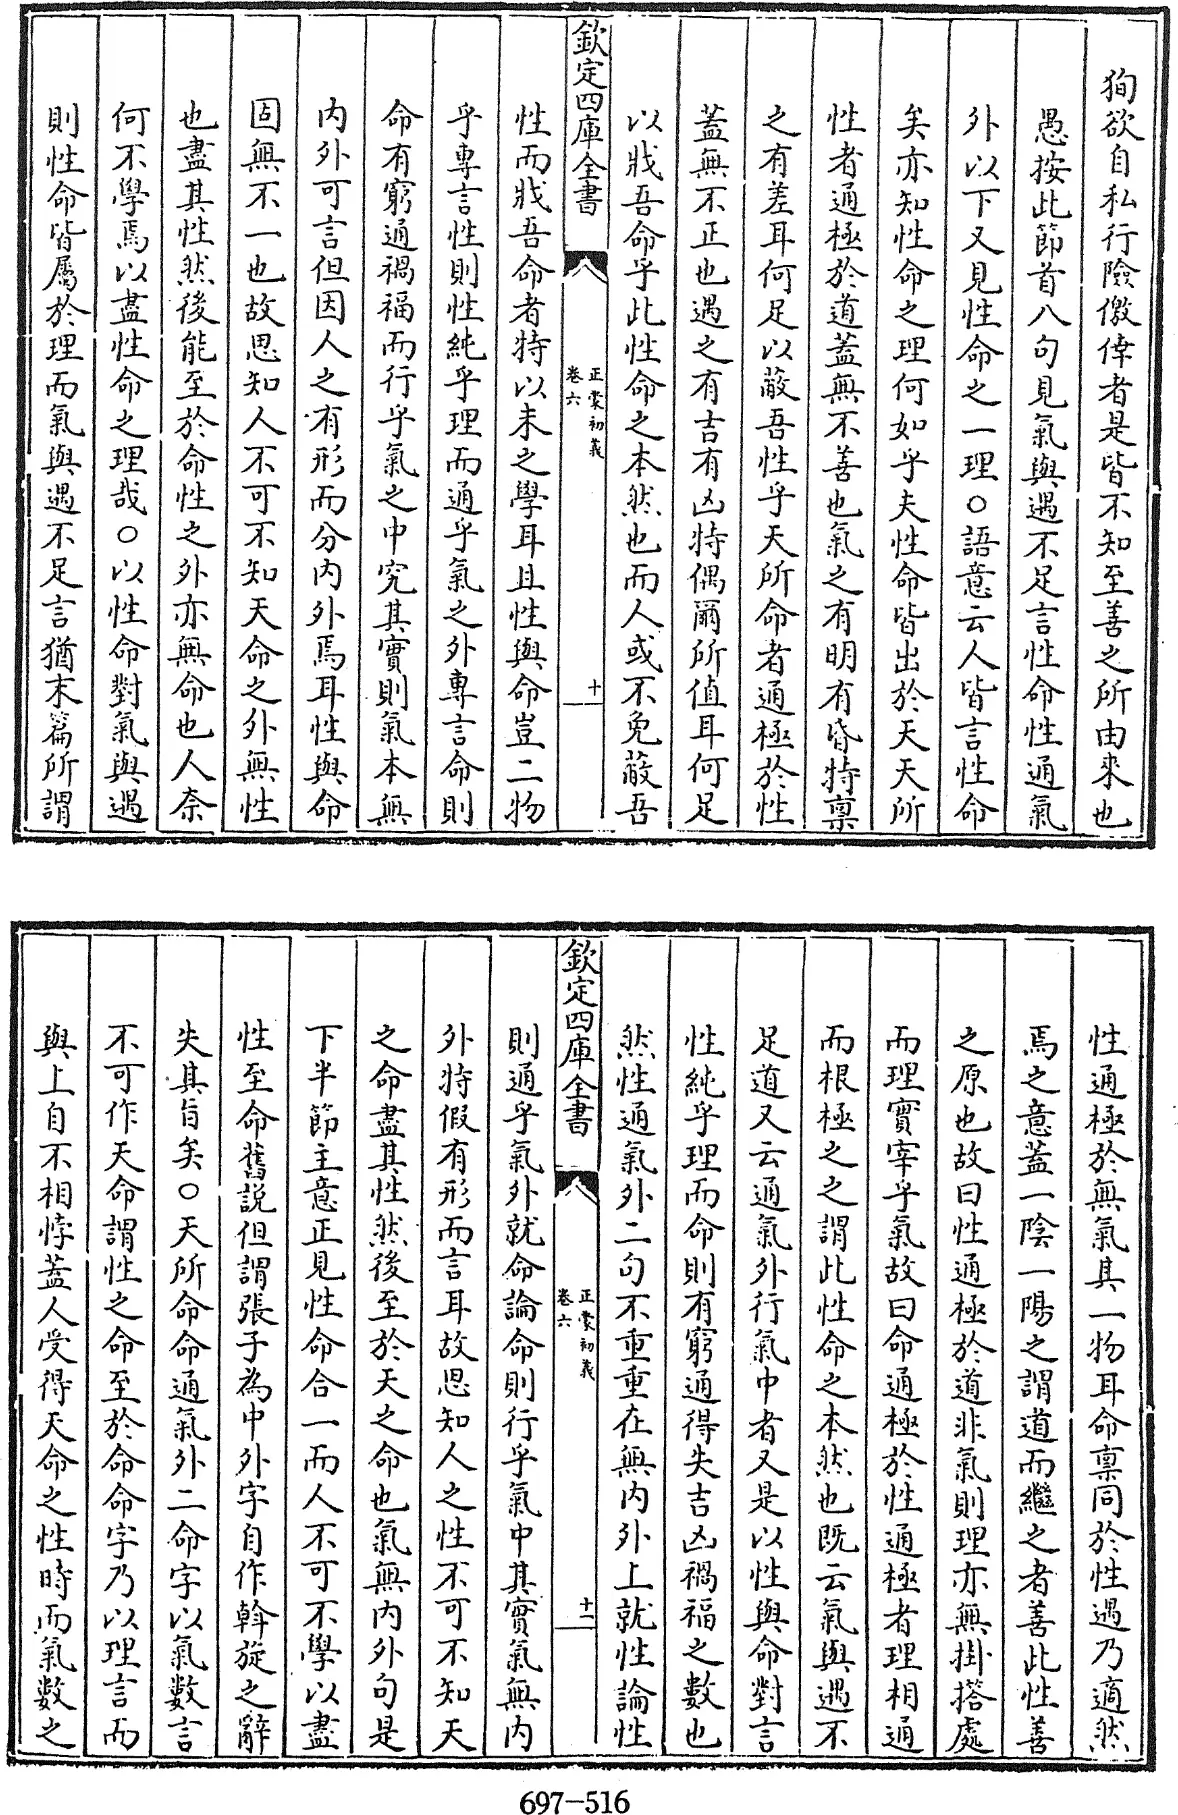 狥欲自私行險儌倖者是皆不知至善之所由來也
愚按此節首八句見氣與遇不足言性命性通氣
外以下又見性命之一理○語意云人皆言性命
矣亦知性命之理何如乎夫性命皆出於天天所
性者通極於道蓋無不善也氣之有明有昏特禀
之有差耳何足以蔽吾性乎天所命者通極於性
蓋無不正也遇之有吉有凶特偶爾所值耳何足
以戕吾命乎此性命之本然也而人或不免蔽吾
欽定四庫全書
正蒙初義
卷六
十
性而戕吾命者特以未之學耳且性與命豈二物
乎專言性則性純乎理而通乎氣之外專言命則
命有窮通禍福而行乎氣之中究其實則氣本無
内外可言但因人之有形而分内外焉耳性與命
固無不一也故思知人不可不知天命之外無性
也盡其性然後能至於命性之外亦無命也人奈
何不學焉以盡性命之理哉○以性命對氣與遇
則性命皆屬於理而氣與遇不足言猶末篇所謂
性通極於無氣其一物耳命禀同於性遇乃適然
焉之意蓋一陰一陽之謂道而繼之者善此性善
之原也故曰性通極於道非氣則理亦無掛搭處
而理實宰乎氣故曰命通極於性通極者理相通
而根極之之謂此性命之本然也既云氣與遇不
足道又云通氣外行氣中者又是以性與命對言
性純乎理而命則有窮通得失吉凶禍福之數也
然性通氣外二句不重重在無内外上就性論性
欽定四庫全書
正蒙初義
卷六
十一
則通乎氣外就命論命則行乎氣中其實氣無内
外特假有形而言耳故思知人之性不可不知天
之命盡其性然後至於天之命也氣無内外句是
下半節主意正見性命合一而人不可不學以盡
性至命舊説但謂張子為中外字自作斡旋之辭
失其旨矣○天所命命通氣外二命字以氣數言
不可作天命謂性之命至於命命字乃以理言而
與上自不相悖蓋人受得天命之性時而氣數之
697-516